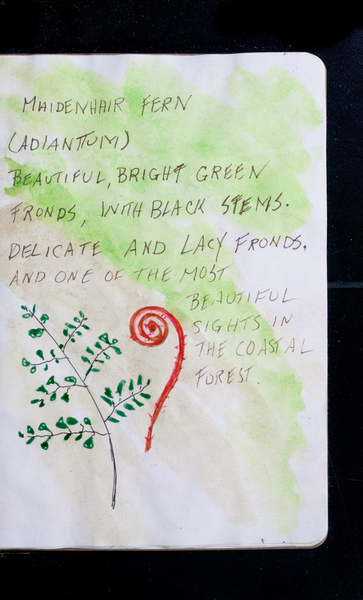 MAIDENHAIR FERN
(ADIANTUM)
BEAUTIFUL, BRIGHT GREEN
FRONDS, WITH BLACK STEMS.
DELICATE AND LACY FRONDS.
AND ONE OF THE MOST
BEAUTIFUL
SIGHTS IN
THE COASTAL
FOREST.